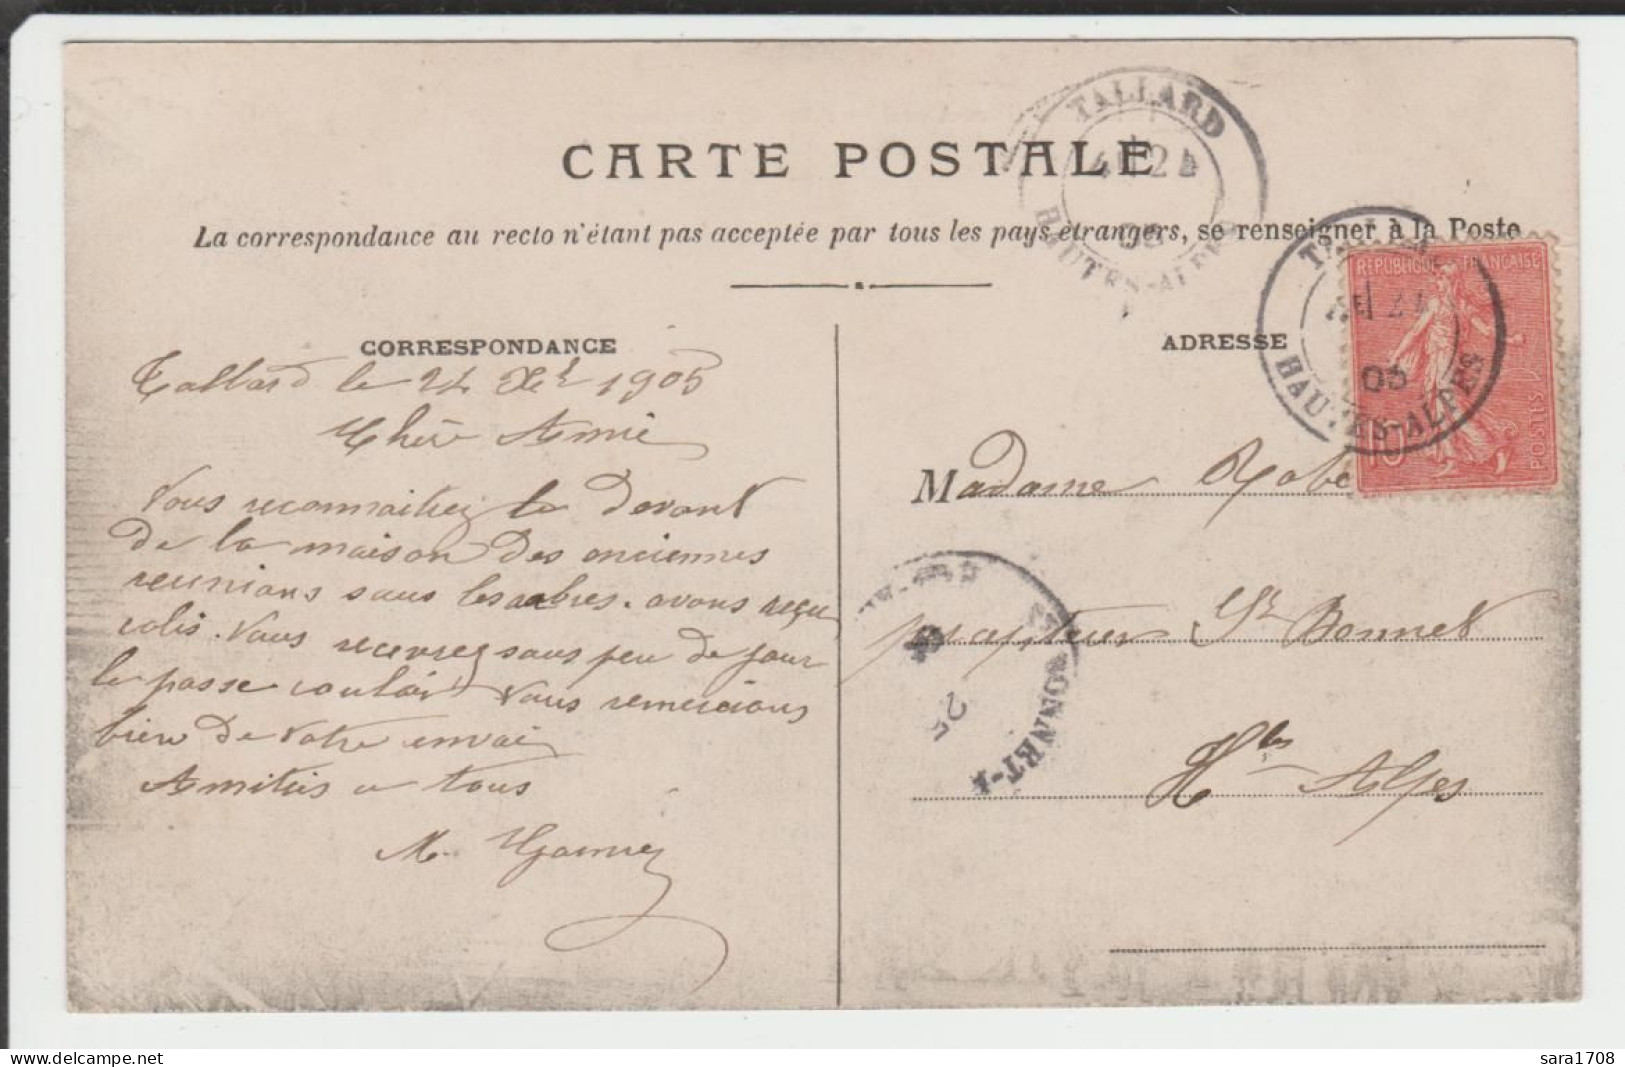 CARTE POSTALE
La correspondance au recto n'étant pas acceptée par tous les pays étrangers, se renseigner à la Poste
TALLARD
24
05
HAUTES-ALPES
RÉPUBLIQUE FRANÇAISE
POSTES
10
05
HAUTES-ALPES
CORRESPONDANCE
Tallard le 24 Xbre 1905
Chère Amie
Vous reconnaitrez le devant
de la maison des anciennes
reunions sans les arbres. avons reçu
colis. Vous recevrez sous peu de jour
le passe couloir Vous remercions
bien de votre envoi
Amitiés a tous
M.
ADRESSE
Madame Robe
percepteur St Bonnet
Htes Alpes
25
sara1708